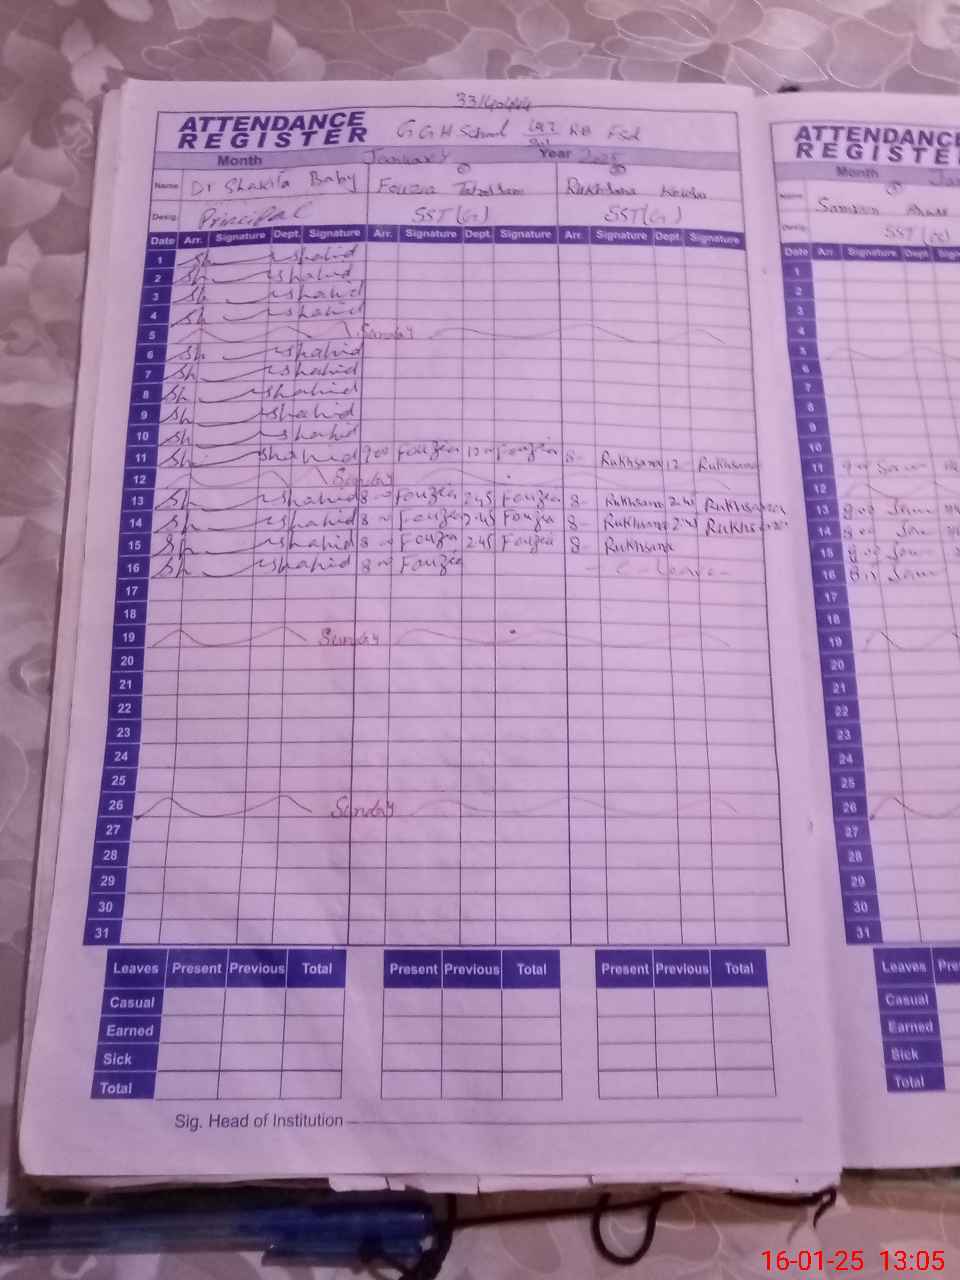 33140444
ATTENDANCE REGISTER GGH School RB Fsd
Month January Year 2025
Name Dr Shakila Baby Fouzia Rukhsana
Desig. Principal SST(G) SST(G)
Date Arr. Signature Dept. Signature Arr. Signature Dept. Signature Arr. Signature Dept. Signature
1 Sh shahid
2 Sh shahid
3 Sh shahid
4 Sh shahid
5 Sunday
6 Sh shahid
7 Sh shahid
8 Sh shahid
9 Sh shahid
10 Sh shahid
11 Sh shahid 9 00 Fouzia 12 Fouzia 8- Rukhsana 12 Rukhsana
12 Sunday
13 Sh shahid 8 00 Fouzia 2 45 Fouzia 8- Rukhsana 2 45 Rukhsana
14 Sh shahid 8 00 Fouzia 2 45 Fouzia 8- Rukhsana 2 45 Rukhsana
15 Sh shahid 8 00 Fouzia 2 45 Fouzia 8- Rukhsana
16 Sh shahid 8 00 Fouzia - C - Leave -
17
18
19 Sunday
20
21
22
23
24
25
26 Sunday
27
28
29
30
31
Leaves Present Previous Total Present Previous Total Present Previous Total
Casual
Earned
Sick
Total
Sig. Head of Institution
ATTENDANCE
REGISTE
Month Jan
SST
Date Arr. Signature Dept.
1
2
3
4
5
6
7
8
9
10
11
12
13
14
15
16
17
18
19
20
21
22
23
24
25
26
27
28
29
30
31
Leaves Pre
Casual
Earned
Sick
Total
16-01-25 13:05